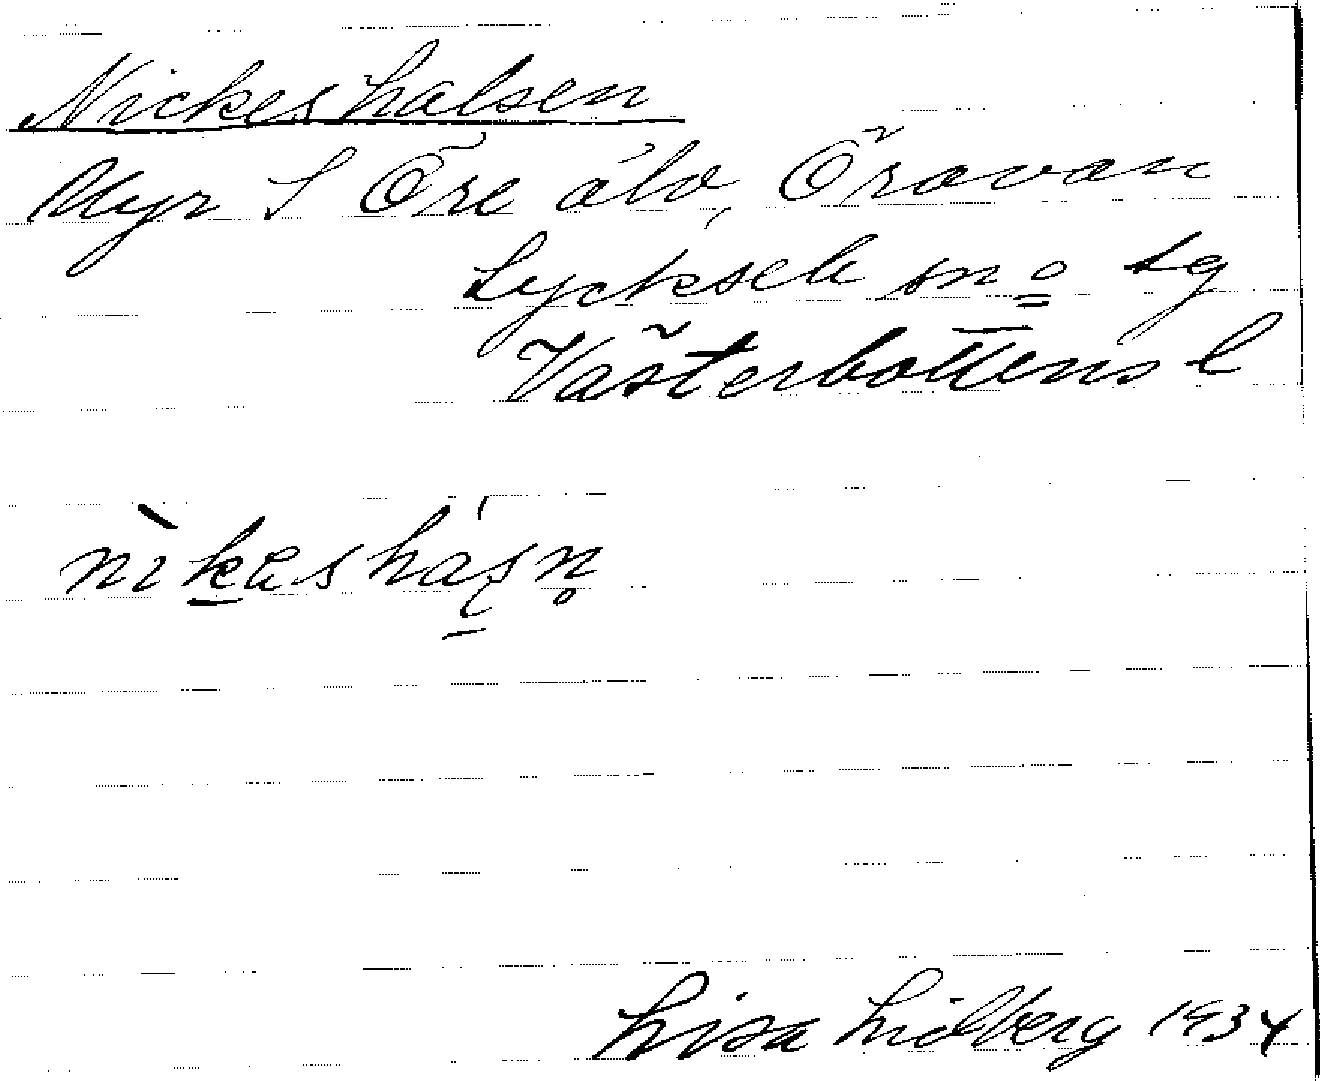 Nickeshalsen
Myr S Öre älv, Öravan
Lycksele sn o tg
Västerbottens l
nìkeshá
Lisa Lidberg 1934